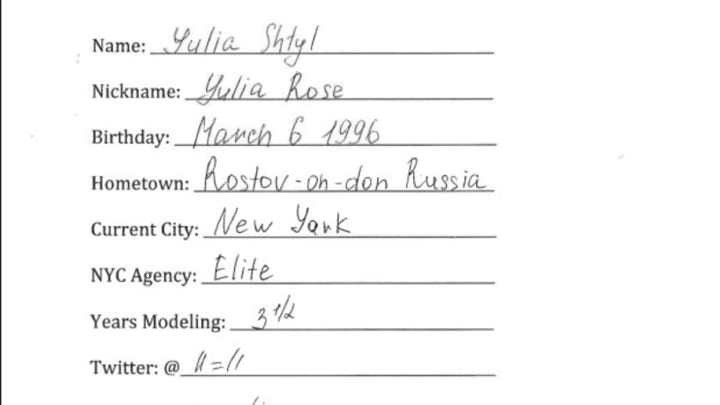 Name: Yulia Shtyl
Nickname: Yulia Rose
Birthday: March 6 1996
Hometown: Rostov-on-don Russia
Current City: New York
NYC Agency: Elite
Years Modeling: 3 1/2
Twitter: @ 11=11